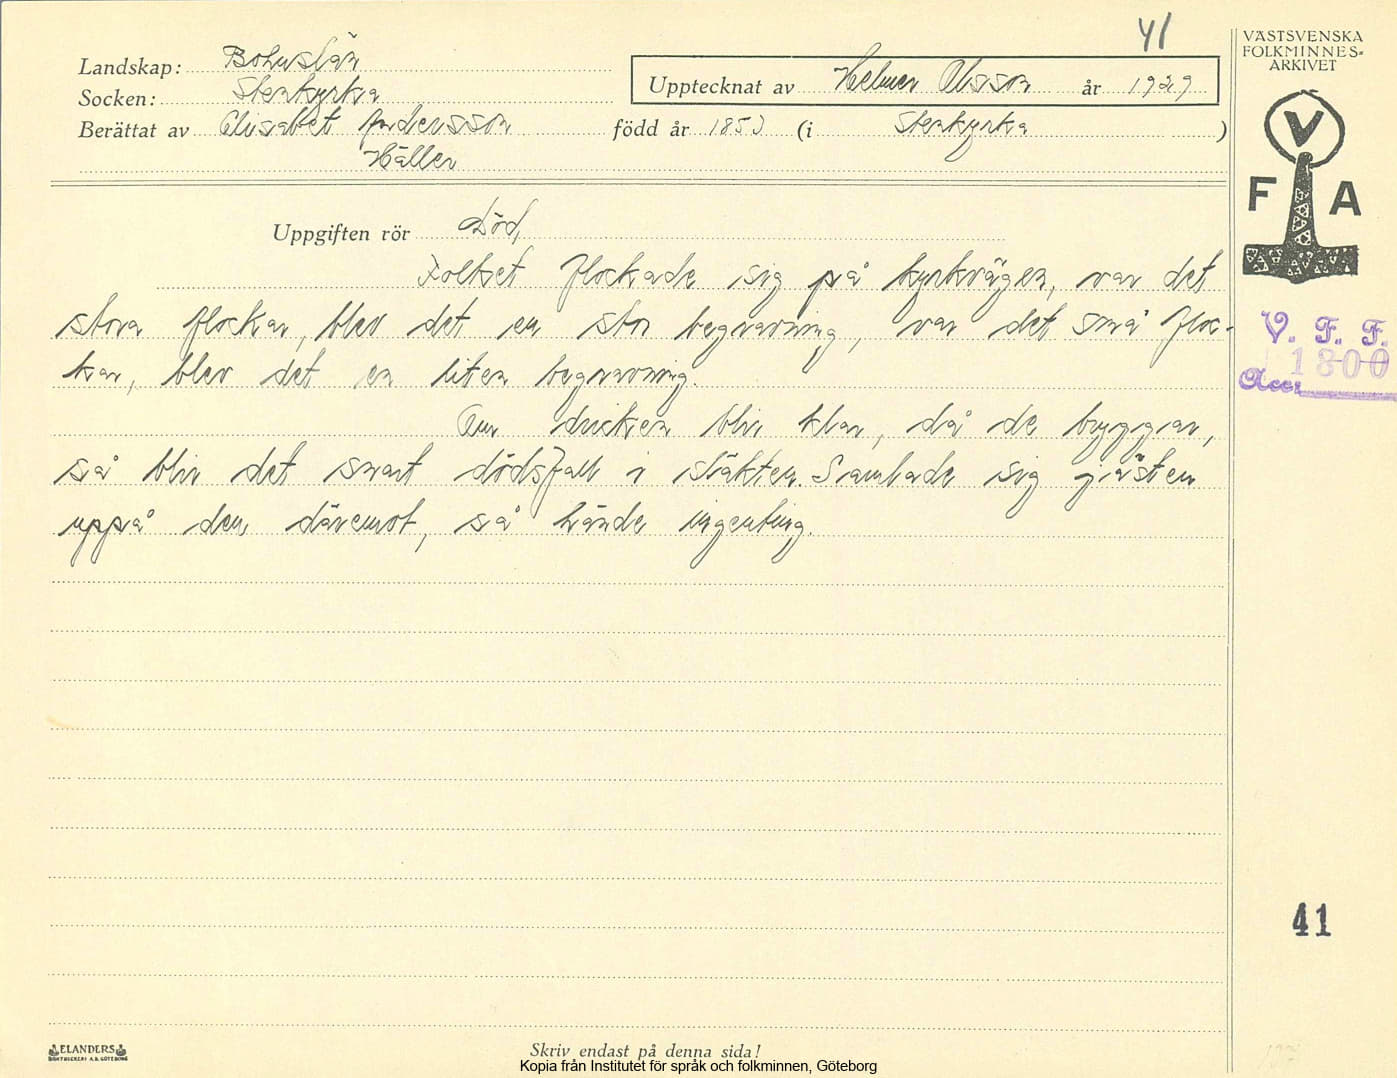 41
VÄSTSVENSKA
FOLKMINNES-
ARKIVET
Landskap: Bohuslän
Socken: Stenkyrka
Upptecknat av Helmer Olsson år 1929
Berättat av Elisabet Andersson född år 1853 (i Stenkyrka)
Häller
V
F A
Uppgiften rör Död,
Folket flockade sig på kyrkvägen, var det
stora flockar, blev det en stor begravning, var det små floc-
kar, blev det en liten begravning.
V. F. F.
1800
Acc.
Om dricken blir klar, då de bryggiar,
så blir det snart dödsfall i släkten. Samlade sig jästen
uppå den däremot, så hände ingenting.
41
ELANDERS
BOKTRYCKERI A.B. GÖTEBORG
Skriv endast på denna sida!
Kopia från Institutet för språk och folkminnen, Göteborg